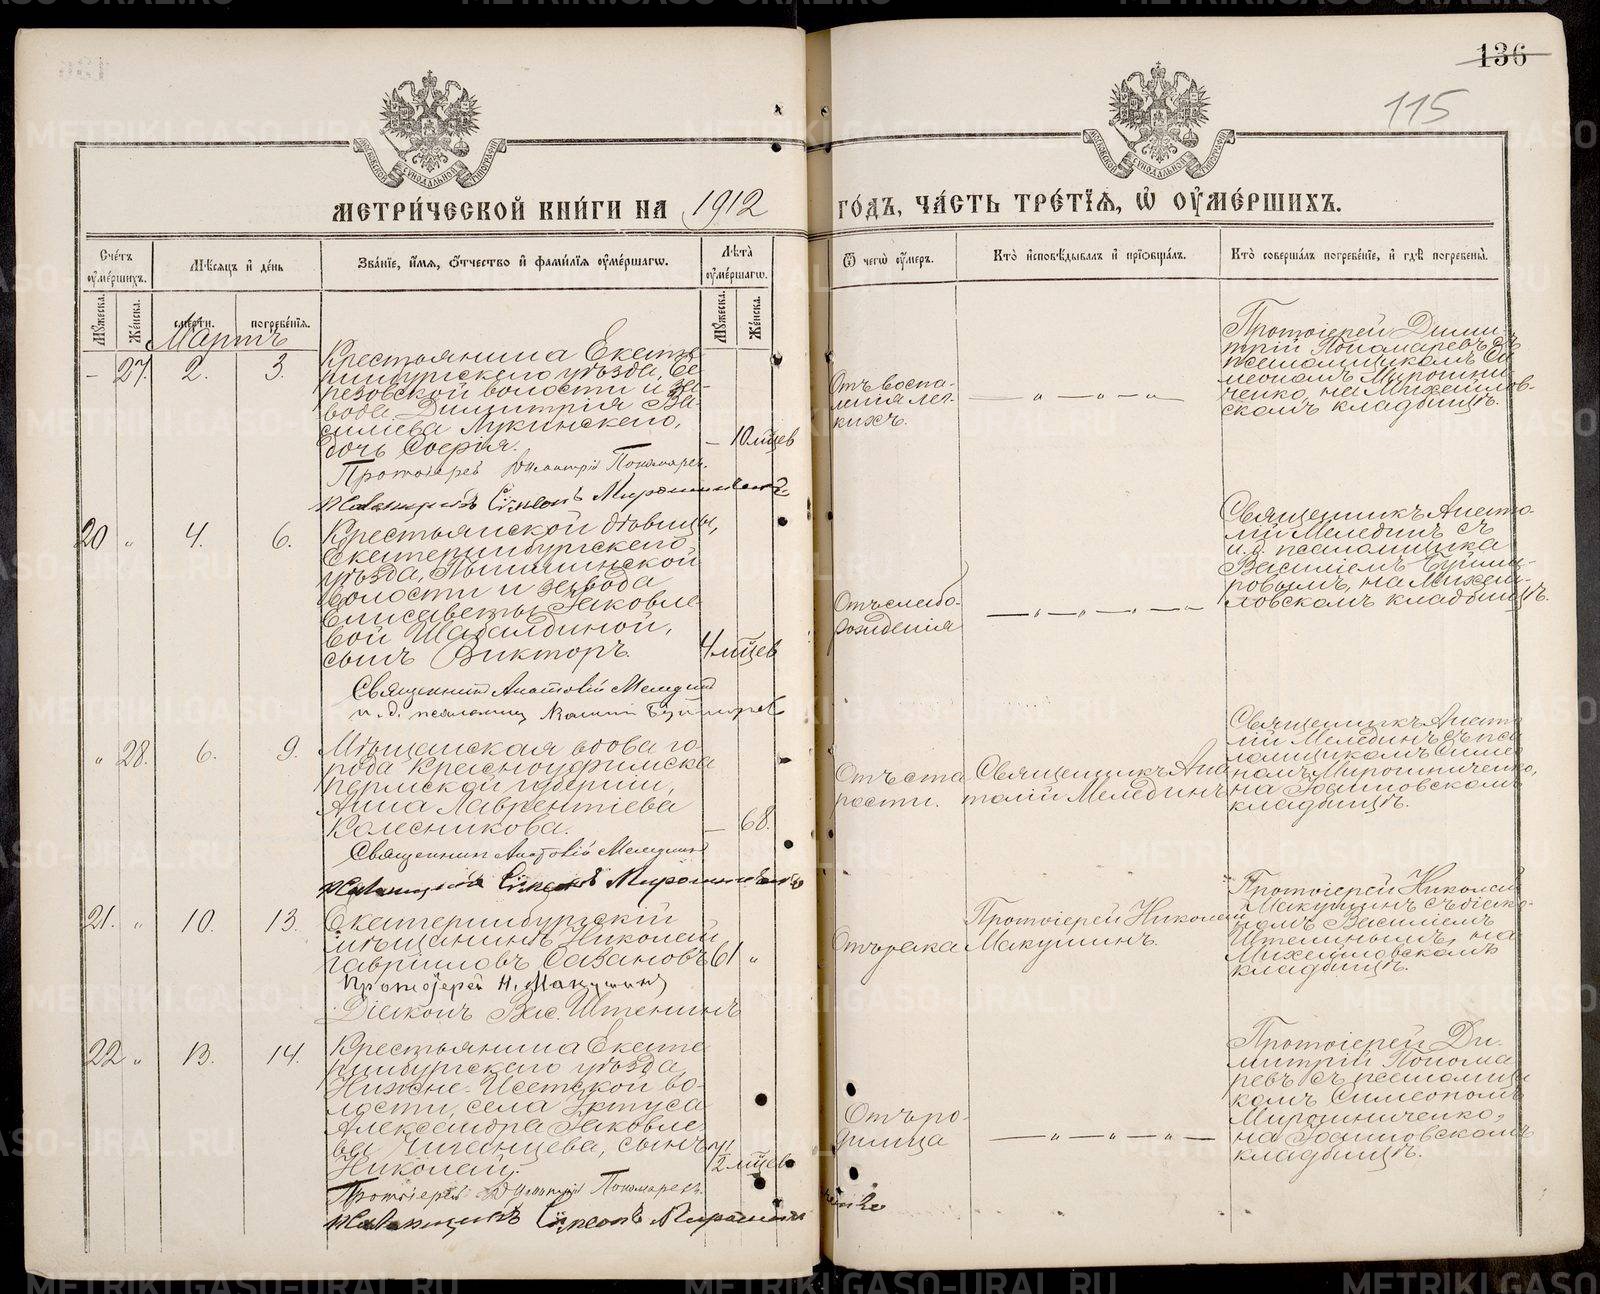 136
115
МЕТРИ́ЧЕСКОЙ КНИ́ГИ НА 1912
ГО́ДЪ, ЧА́СТЬ ТРЕ́ТЇѦ, Ѡ҆ ОУ҆МЕ́РШИХЪ.
Сче́тъ оу҆ме́ршихъ.
Мѣ́сяцъ и҆ де́нь
Зва́нїе, и҆́мѧ, ѻ҆́тчество и҆ фами́лїѧ оу҆ме́ршагѡ.
Лѣ̀та оу҆ме́ршагѡ.
Ѿ чегѡ̀ оу҆́меръ.
Кто̀ и҆сповѣ́дывалъ и҆ прїѡбща́лъ.
Кто̀ соверша́лъ погребе́нїе, и҆ гдѣ̀ погребены̀.
Мꙋ́жеска.
Же́нска.
сме́рти.
погребе́нїѧ.
Мꙋ́жеска.
Же́нска.
Мартъ
- 27. 2. 3.
Крестьянина Екате-
ринбургскаго уѣзда, Бе-
резовской волости и за-
вода Димитрія Ва-
силіева Лукинскаго,
дочь Софія.
- 10 мѣсяцев
Протоіерей Димитрій Пономарев.
Псаломщикъ Сімеонъ Мирошниченко
Отъ воспа-
ленія лег-
кихъ.
— „ — „ — „ —
Протоіерей Дими-
трій Пономаревъ съ
псаломщикомъ Си-
меономъ Мирошни-
ченко, на Михайлов-
скомъ кладбищѣ.
20 „ 4. 6.
Крестьянской дѣвицы,
Екатеринбургскаго
уѣзда, Пышминской
волости и завода
Елисаветы Яковле-
вой Шабалдиной,
сынъ Викторъ.
4 мѣсяцев
Священникъ Анатолій Меледин
и. д. псаломщ. Василій Буймиров
Отъ слабо-
рожденія
— „ — „ — „ —
Священникъ Анато-
лій Мелединъ съ
и. д. псаломщика
Василіемъ Буйми-
ровымъ, на Михай-
ловскомъ кладбищѣ.
„ 28. 6. 9.
Мѣщанская вдова го-
рода Красноуфимска
Пермской губерніи,
Анна Лаврентіева
Колесникова.
- 68.
Священник Анатолій Меледин
Псаломщикъ Сімеонъ Мирошниченко
Отъ ста-
рости.
Священникъ Ана-
толій Мелединъ
Священникъ Анато-
лій Мелединъ съ пса-
ломщикомъ Симео-
номъ Мирошниченко,
на Іоанновскомъ
кладбищѣ.
21. „ 10. 13.
Екатеринбургскій
мѣщанинъ Николай
Гавріиловъ Сазановъ
61 „
Протоіерей Н. Макушинъ
Діаконъ Вас. Штенинъ
Отъ рака
Протоіерей Николай
Макушинъ.
Протоіерей Николай
Макушинъ съ діако-
номъ Василіемъ
Штенинымъ, на
Михайловскомъ
кладбищѣ.
22 „ 13. 14.
Крестьянина Екате-
ринбургскаго уѣзда,
Нижне-Исетской во-
лости, села Уктуса
Александра Яковле-
ва Чижанцева, сынъ
Николай.
1 1/2 мѣсяцев
Протоіерей Димитрій Пономаревъ.
Псаломщикъ Сімеонъ Мирошниченко
Отъ ро-
димца
— „ — „ — „ —
Протоіерей Ди-
митрій Понома-
ревъ съ псаломщи-
комъ Симеономъ
Мирошниченко,
на Іоанновскомъ
кладбищѣ.
METRIKI.GASO-URAL.RU